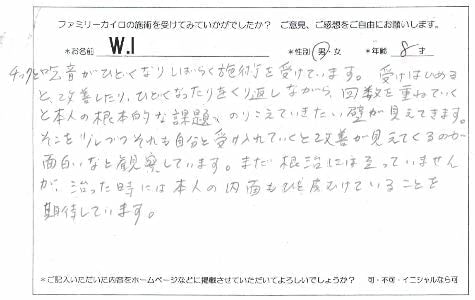 ファミリーカイロの施術を受けてみていかがでしたか? ご意見、ご感想をご自由にお願いします。
*お名前 W.I *性別 男・女 *年齢 8 才
チックと吃音がひどくなりしばらく施術を受けています。 受けはじめる
と、改善したり、ひどくなったりをくり返しながら、回数を重ねていく
と本人の根本的な課題、のりこえていきたい壁が見えてきます。
そこを少しづつそれも自分と受け入れていくと改善が見えてくるのが
面白いなと観察しています。まだ根治には至っていません
が、治った時には本人の内面もひと皮むけていることを
期待しています。
*ご記入いただいた内容をホームページなどに掲載させていただいてよろしいでしょうか? 可・不可・イニシャルなら可